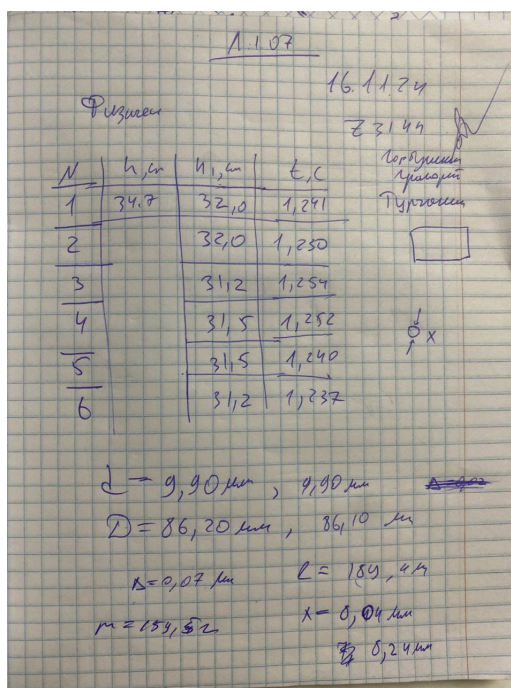 1.1.07
16.11.24
Z3144
N h, см h1, см t, с
1 34.7 32,0 1,241
2 32,0 1,250
3 31,2 1,254
4 31,5 1,252
X
5 31,5 1,240
6 31,2 1,237
d = 9,90 мм, 9,90 мм
D = 86,20 мм, 86,10 мм
Δ=0,07 мм
m = 159,5 г
0,24 мм